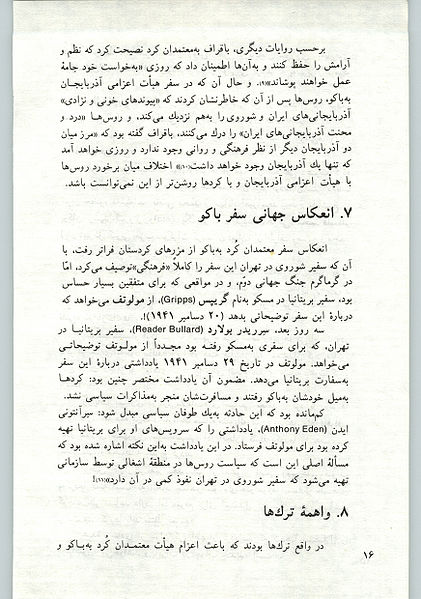 برحسب روایات دیگری، باقراف به‌معتمدان کرد نصیحت کرد که نظم و
آرامش را حفظ کنند و به‌آن‌ها اطمینان داد که روزی «به‌خواست خود جامهٔ
عمل خواهند پوشاند» و حال آن که در سفر هیأت اعزامی آذربایجان
به‌باکو، روس‌ها پس از آن که خاطرنشان کردند که «پیوندهای خونی و نژادی»
آذربایجانی‌های ایران و شوروی را به‌هم نزدیک می‌کند، و روس‌ها «درد و
محنت آذربایجانی‌های ایران» را درك می‌کنند، باقراف گفته بود که «مرز میان
دو آذربایجان دیگر از نظر فرهنگی و روانی وجود ندارد و روزی خواهد آمد
که تنها یك آذربایجان وجود خواهد داشت» اختلاف میان برخورد روس‌ها
با هیأت اعزامی آذربایجان و با کردها روشن‌تر از این نمی‌توانست باشد.
۷. انعکاس جهانی سفر باکو
انعکاس سفر معتمدان کُرد به‌باکو از مرزهای کردستان فراتر رفت، با
آن که سفیر شوروی در تهران این سفر را کاملاً «فرهنگی» توصیف می‌کرد، امّا
در گرماگرم جنگ جهانی دوّم، و در مواقعی که برای متفقین بسیار حساس
بود، سفیر بریتانیا در مسکو به‌نام گریپس (Gripps)، از مولوتف می‌خواهد که
دربارهٔ این سفر توضیحاتی بدهد (۲۰ دسامبر ۱۹۴۱)!.
سه روز بعد، سرریدر بولارد (Reader Bullard)، سفیر بریتانیا در
تهران، که برای سفری به‌مسکو رفته بود مجدداً از مولوتف توضیحاتی
می‌خواهد. مولوتف در تاریخ ۲۹ دسامبر ۱۹۴۱ یادداشتی دربارهٔ این سفر
به‌سفارت بریتانیا می‌دهد. مضمون آن یادداشت مختصر چنین بود: کردها
به‌میل خودشان به‌باکو رفتند و مسافرت‌شان منجر به‌مذاکرات سیاسی نشد.
کم‌مانده بود که این حادثه به‌یك طوفان سیاسی مبدل شود: سرآنتونی
ایدن (Anthony Eden)، یادداشتی را که سرویس‌های او برای بریتانیا تهیه
کرده بود برای مولوتف فرستاد. در این یادداشت به‌این نکته اشاره شده بود که
مسألهٔ اصلی این است که سیاست روس‌ها در منطقهٔ اشغالی توسط سازمانی
تهیه می‌شود که سفیر شوروی در تهران نفوذ کمی در آن دارد»!
۸. واهمهٔ ترك‌ها
در واقع ترك‌ها بودند که باعث اعزام هیأت معتمدان کُرد به‌باکو و
۱۶